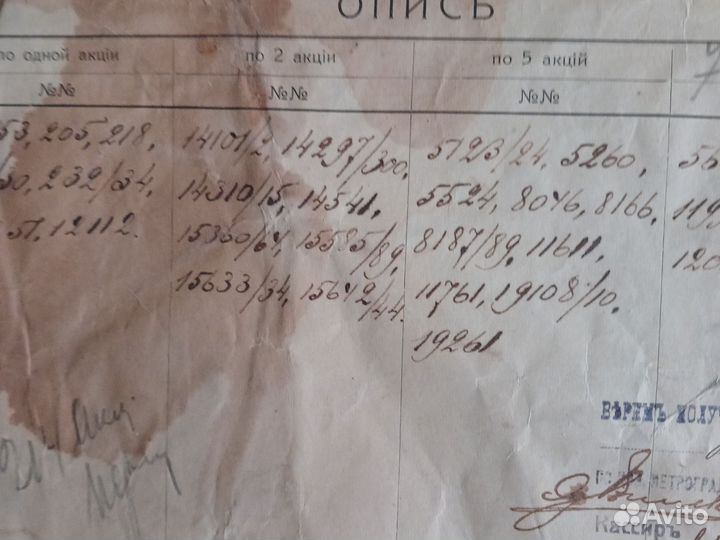 ОПИСЬ
по одной акціи по 2 акціи по 5 акцій
№№ №№ №№
53, 205, 218, 14101/2, 14297/300, 5123/24, 5260, 56
30, 232/34, 14310/15, 14541, 5524, 8046, 8166, 119
51, 12112. 15360/64, 15585/89, 8187/89, 11611, 120
15633/34, 15642/44. 11761, 19108/10,
19261
ВѢРЕМЪ
ПЕТРОГРАД
Кассиръ
Avito